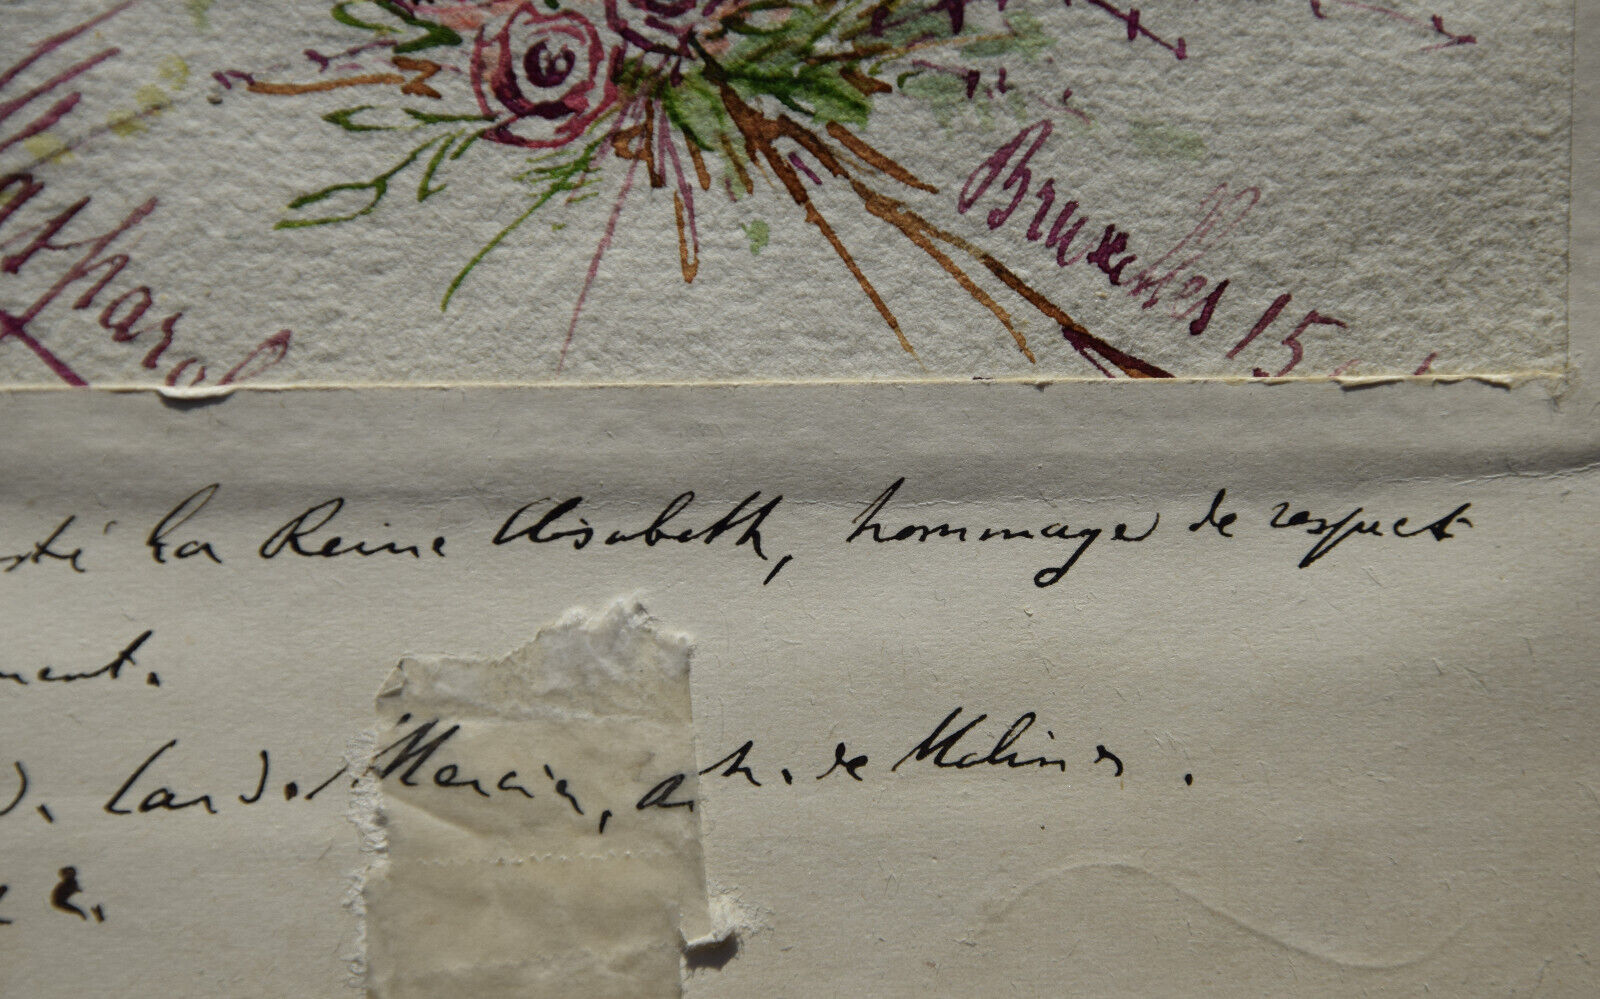 Bruxelles 15
sté la Reine Elisabeth, hommage de respect
ment.
D. Card. Mercier, arch. de Malines.
2.